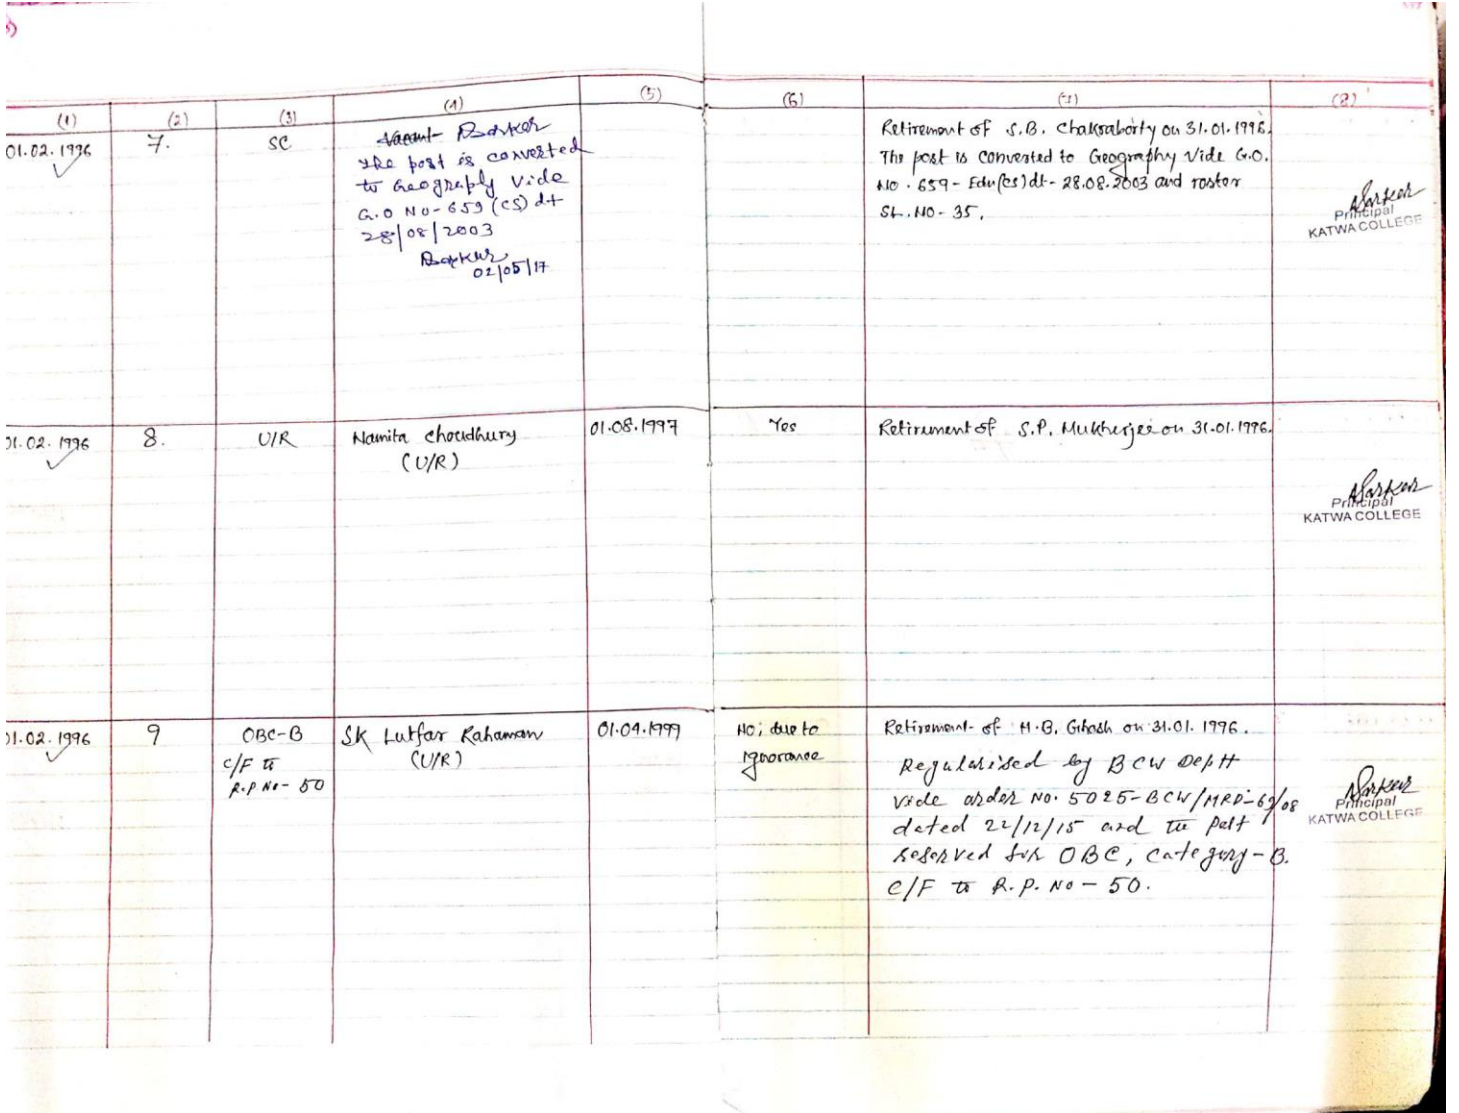 (1) (2) (3) (4) (5) (6) (7) (8)
01.02.1996 7. SC
Vacant
the post is converted
to Geography vide
G.O No-659 (CS) dt
28/08/2003
02/05/17
Retirement of S.B. Chakraborty on 31.01.1996.
The post is converted to Geography Vide G.O.
No. 659-Edn(CS)dt-28.08.2003 and roster
SL.NO-35.
Sarkar
Principal
KATWA COLLEGE
01.02.1996 8. U/R Namita Choudhury 01.08.1997 Yes Retirement of S.P. Mukherjee on 31.01.1996.
(U/R)
Sarkar
Principal
KATWA COLLEGE
01.02.1996 9 OBC-B SK Lutfar Rahaman 01.04.1999 No; due to Retirement of M.B. Ghosh on 31.01.1996.
C/F to (U/R) ignorance
R.P No-50
Regularised by BCW Deptt
vide order No. 5025-BCW/MRD-69/08
dated 22/12/15 and the post
reserved for OBC, category-B.
C/F to R.P. No-50.
Sarkar
Principal
KATWA COLLEGE